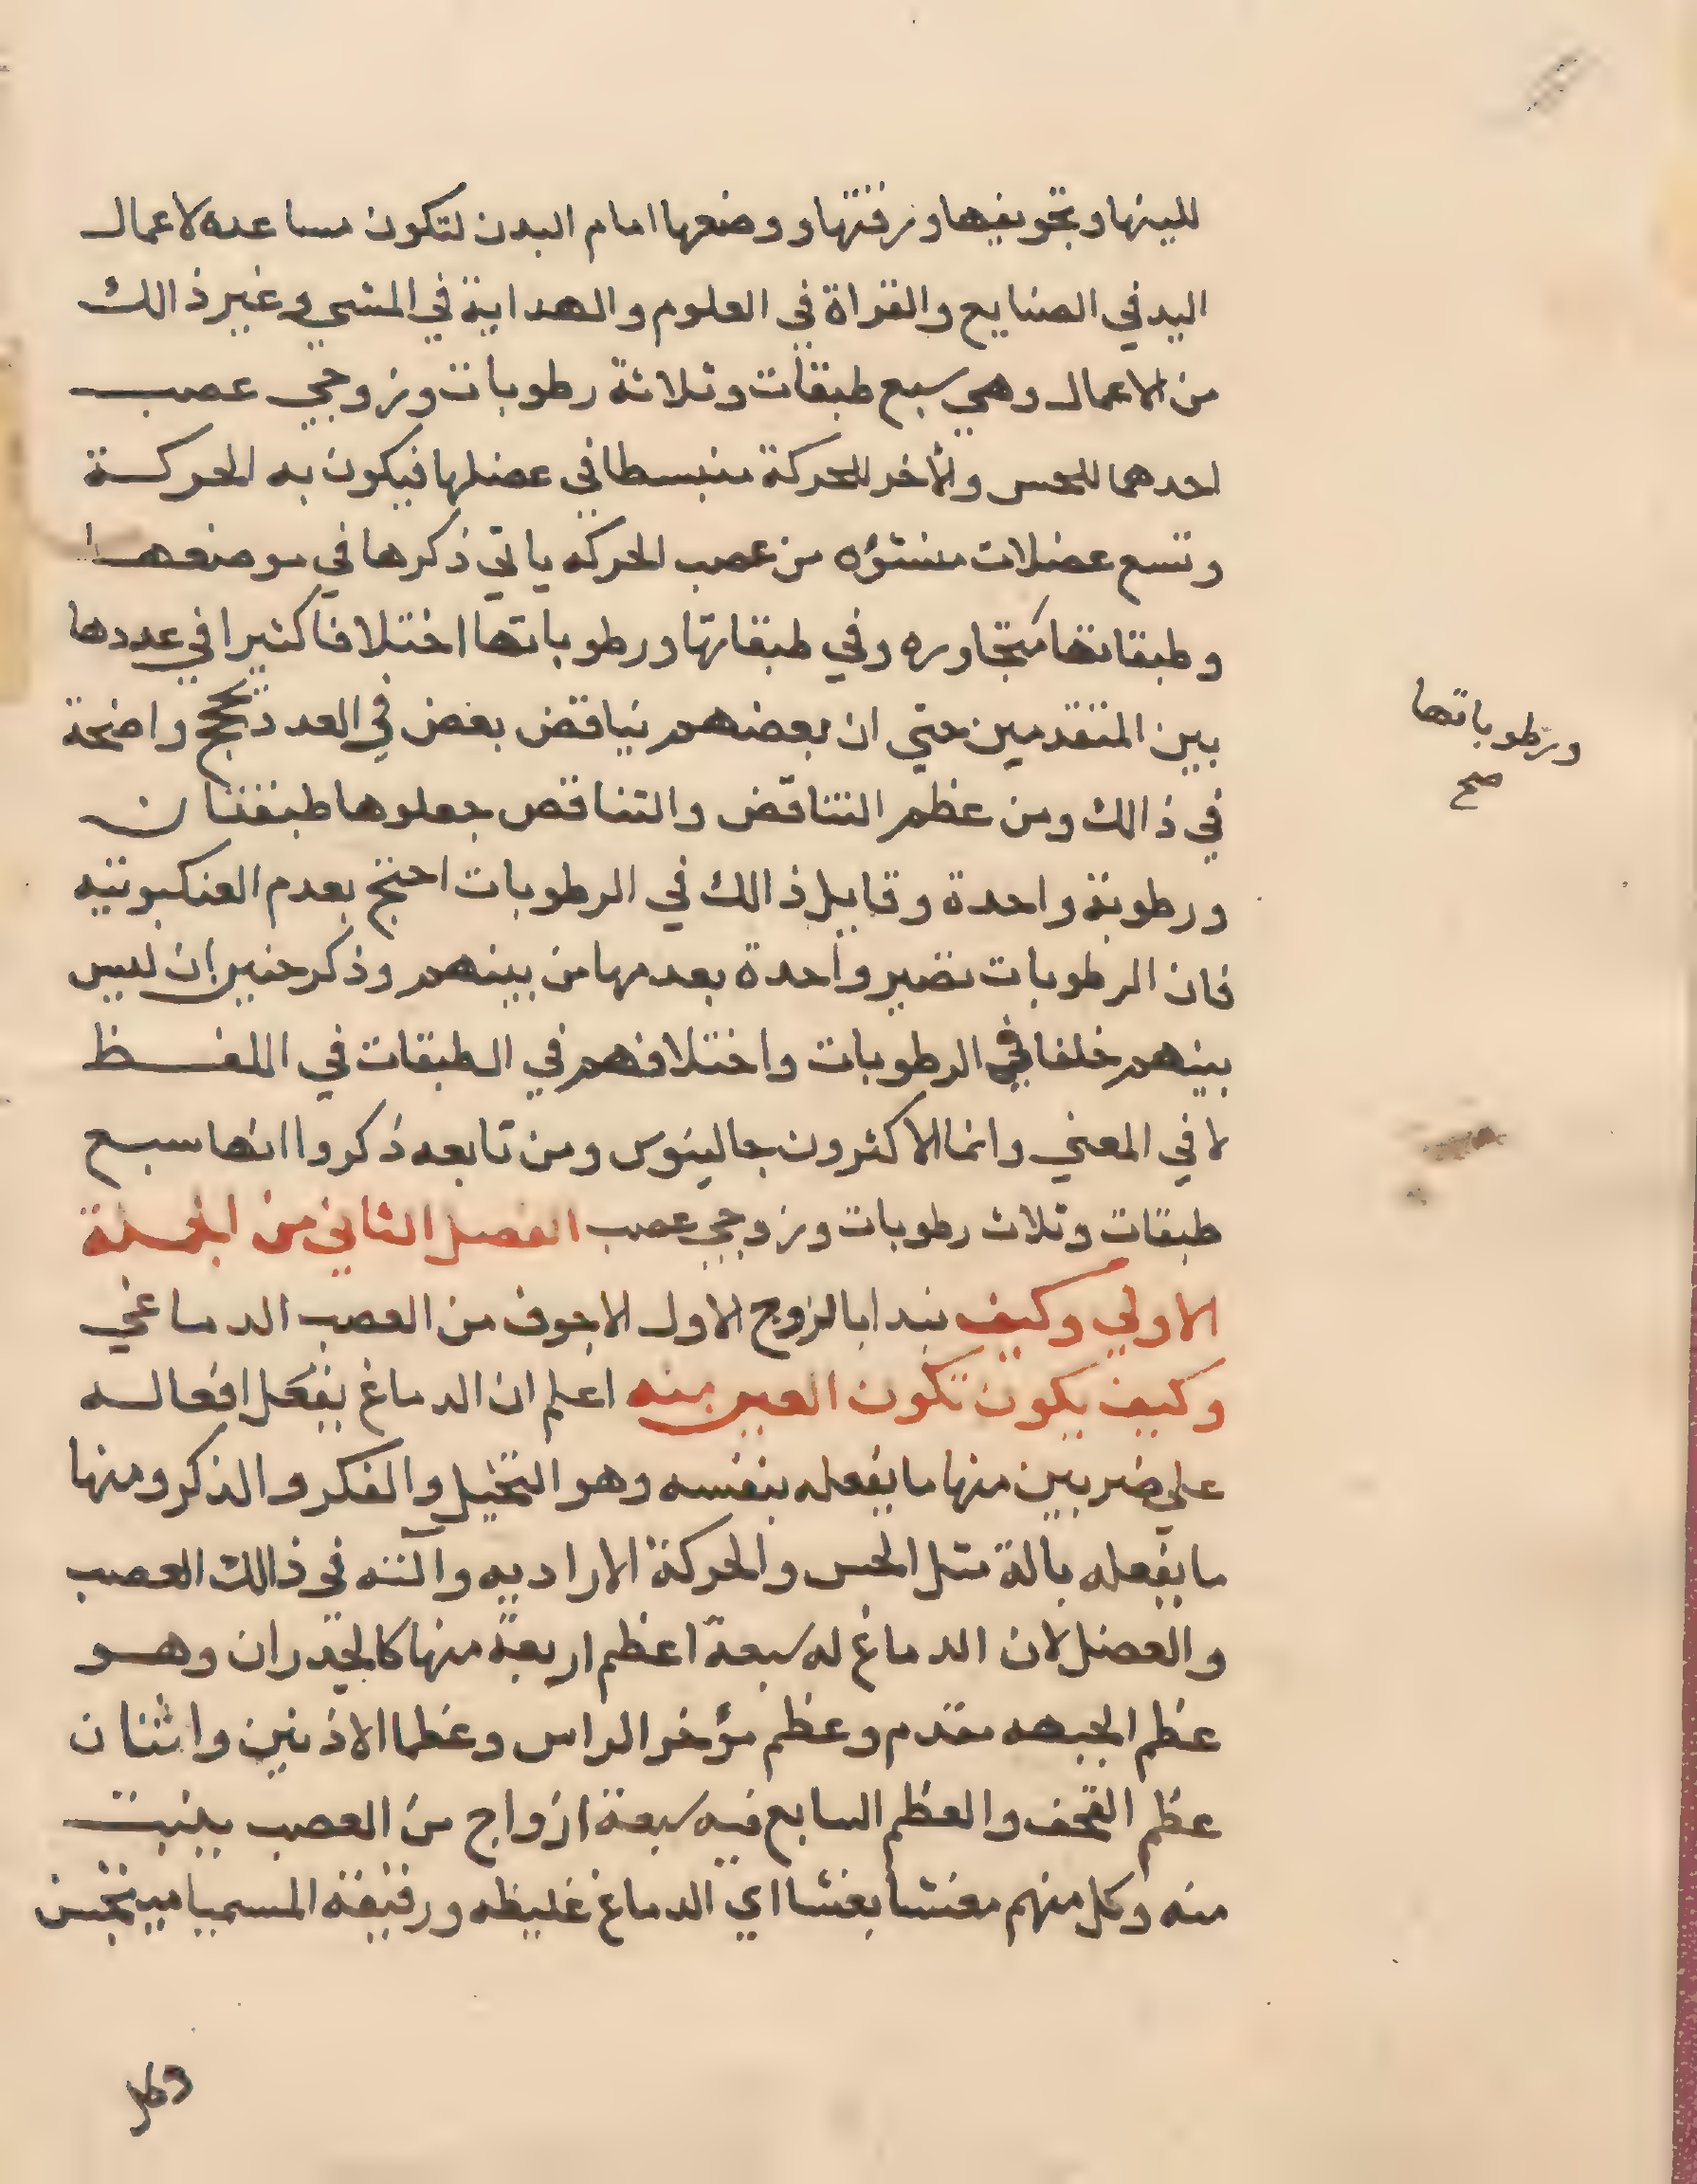 للينها وتجويفها ورقتها ووضعها امام البدن لتكون مساعده لاعمال
اليد في الصنايع والقراة في العلوم والهداية في المشي وغير ذالك
من الاعمال وهي سبع طبقات وثلاثة رطوبات وزوجي عصب
احدهما للحس والأخر للحركة منبسطا في عضلها فيكون به الحركة
وتسع عضلات منشؤه من عصب الحركه ياتي ذكرها في موضعها
وطبقاتها متجاوره وفي طبقاتها ورطوباتها اختلافا كثيرا في عددها
بين المتقدمين حتي ان بعضهم يناقض بعض في العدد بحجج واضحة
في ذالك ومن عظم التناقض والتناقص جعلوها طبقتان
ورطوبة واحدة وقايل ذالك في الرطوبات احتج بعدم العنكبوتيه
فان الرطوبات تصير واحدة بعدمها من بينهم وذكر حنين ان ليس
بينهم خلفا في الرطوبات واختلافهم في الطبقات في اللفظ
لا في المعني وانما الاكثرون جالينوس ومن تابعه ذكروا انها سبع
طبقات وثلاث رطوبات وزوجي عصب الفصل الثاني من الجملة
الاولي وكيف نبدا بالزوج الاول الاجوف من العصب الدماغي
وكيف يكون تكون العين منه اعلم ان الدماغ يفعل افعاله
علي ضربين منها ما يفعله بنفسه وهو التخيل والفكر والذكر ومنها
ما يفعله بالة مثل الحس والحركة الاراديه وآلته في ذالك العصب
والعضل لان الدماغ له سبعة اعظم اربعة منها كالجدران وهو
عظم الجبهه مقدم وعظم مؤخر الراس وعظما الاذنين واثنان
عظم القحف والعظم السابع فيه سبعة ازواج من العصب ينبت
منه وكل منهم مغشا بغشااي الدماغ غليظه ورقيقة المسميا مينخس
ورطوباتها
صح